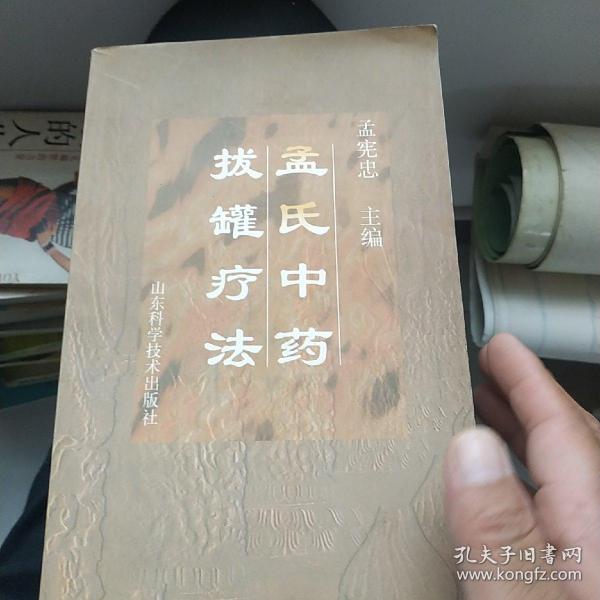 孟宪忠 主编
孟氏中药
拔罐疗法
山东科学技术出版社
的人
孔夫子旧书网
www.kongfz.com